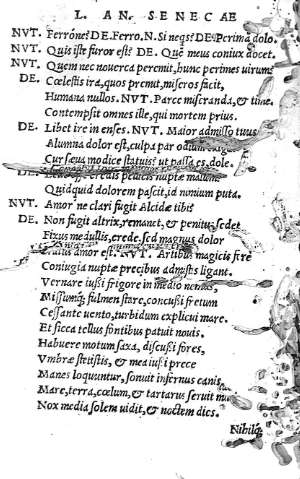 L. AN. SENECAE
NVT. Ferróne? DE. Ferro. N. Si neqs? DE. Perimā dolo.
NVT. Quis iste furor est? DE. Què meus coniux docet.
NVT. Quem nec nouerca peremit, hunc perimes uirum?
DE. Cœlestis ira, quos premit, miseros facit,
Humana nullos. NVT. Parce miseranda, & time.
Contempsit omnes ille, qui mortem prius.
DE. Libet ire in enses. NVT. Maior admisso tuus
Alumna dolor est, culpa par odium
Cur sæua modice statuis? ut passa es, dole.
DE. credis pelicem nuptæ malum?
Quidquid dolorem pascit, id nimium puta.
NVT. Amor ne clari fugit Alcidæ tibi?
DE. Non fugit altrix, remanet, & penitus sedet
Fixus medullis, crede. sed magnus dolor
amor est. NVT. Artibus magicis fere
Coniugia nuptæ precibus admistis ligant.
Vernare iußi frigore in medio nemus,
Missumq; fulmen stare, concußi fretum
Cessante uento, turbidum explicui mare.
Et sicca tellus fontibus patuit nouis.
Habuere motum saxa, discußi fores,
Vmbræ stetistis, & mea iußi prece
Manes loquuntur, sonuit infernus canis,
Mare, terra, cœlum, & tartarus seruit
Nox media solem uidit, & noctem dies.
Nihilq;